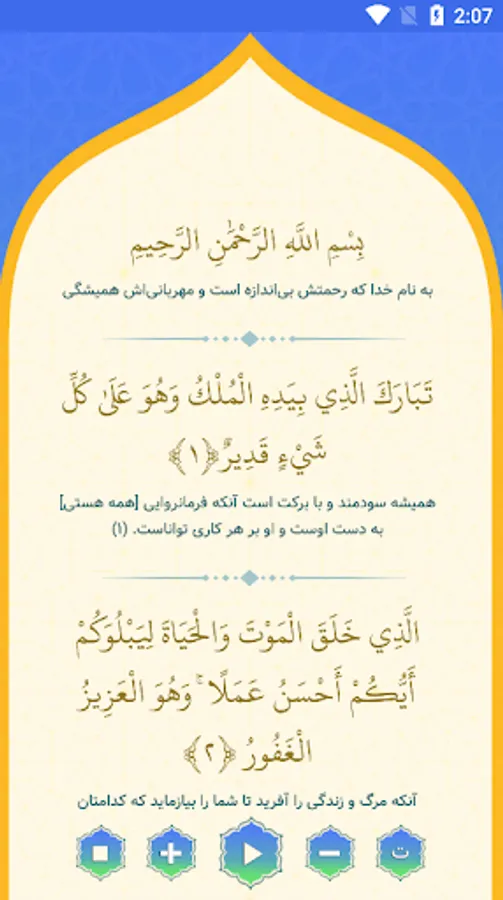 2:07
بِسْمِ اللَّهِ الرَّحْمَٰنِ الرَّحِيمِ
به نام خدا که رحمتش بی‌اندازه است و مهربانی‌اش همیشگی
تَبَارَكَ الَّذِي بِيَدِهِ الْمُلْكُ وَهُوَ عَلَىٰ كُلِّ
شَيْءٍ قَدِيرٌ ﴿١﴾
همیشه سودمند و با برکت است آنکه فرمانروایی [همه هستی]
به دست اوست و او بر هر کاری تواناست. (۱)
الَّذِي خَلَقَ الْمَوْتَ وَالْحَيَاةَ لِيَبْلُوَكُمْ
أَيُّكُمْ أَحْسَنُ عَمَلًا ۚ وَهُوَ الْعَزِيزُ
الْغَفُورُ ﴿٢﴾
آنکه مرگ و زندگی را آفرید تا شما را بیازماید که کدامتان
ت